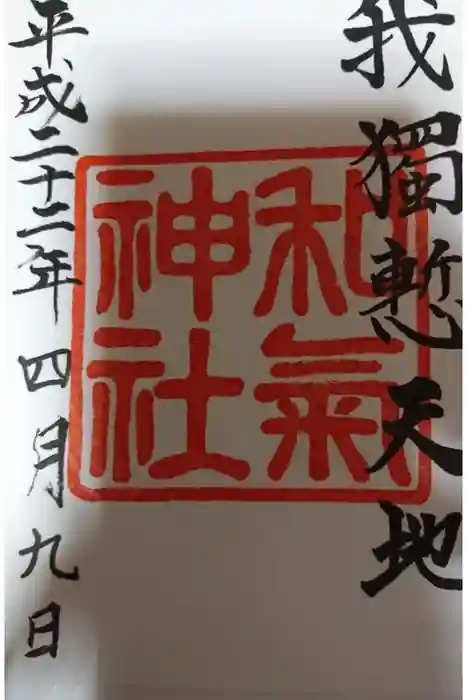 我獨慙天地
和氣
神社
平成二十二年四月九日